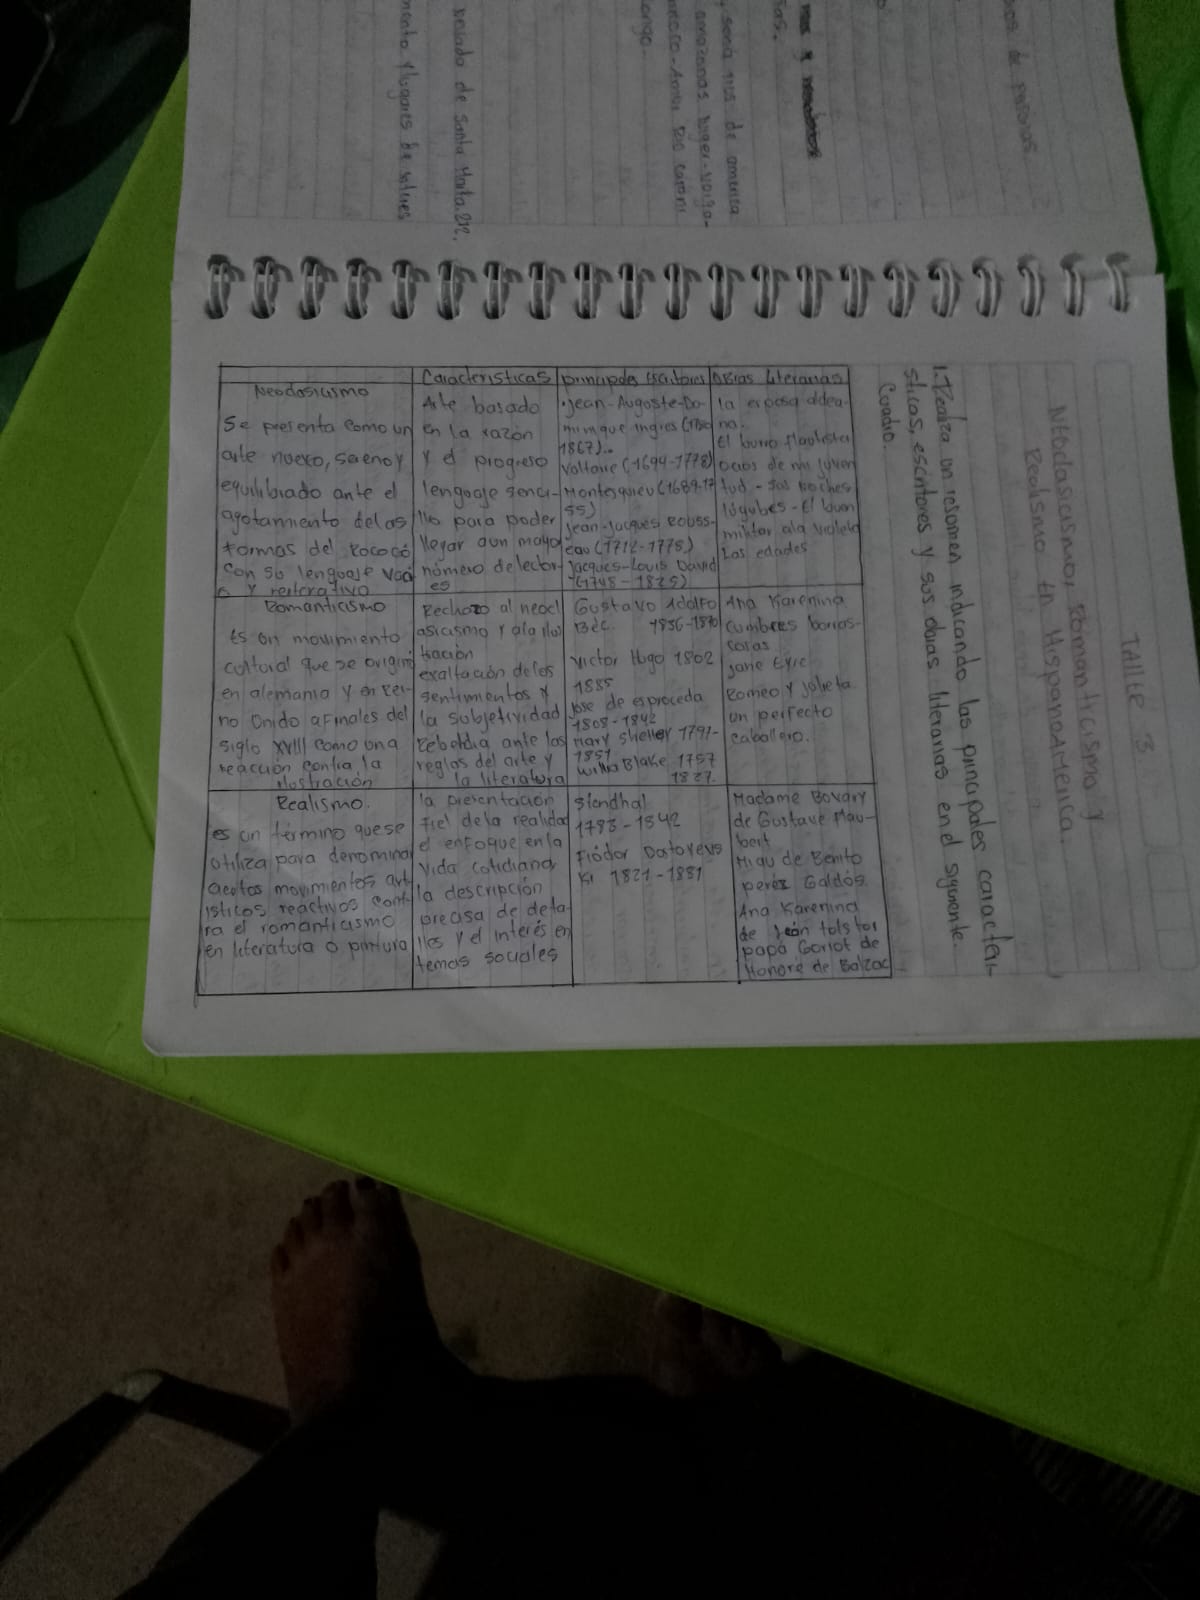 TAllCE 3
Neoclasicismo, Romanticismo y
Realismo en HispanoAmérica.
1. Realiza un resumen indicando las principales caracter-
sticas, escritores y sus obras literarias en el siguiente
Cuadro.
Caracteristicas
principales Escritores
OBras literarias
Neoclasicismo
Se presenta como un
arte nuevo, sereno y
equilibrado ante el
agotamiento delas
formas del Rococó
con su lenguaje
Arte basado
en la razón
y el progreso
lenguaje senci-
llo para poder
llegar aun mayo
número de lector-
es
Jean-Auguste-Do-
minique ingres (1780
1867)..
Voltaire (1694-1778)
Montesquieu (1689-17
55)
Jean-Jacques Rouss-
eau (1712-1778)
Jacques-Louis David
(1748-1825)
la esposa aldea-
na.
El burro flautista
Ocios de mi juven
tud - las noches
lúgubes - El buen
militar ala violeta
Las edades
Romanticismo
es un movimiento
cultural que se origino
en alemania y en Rei-
no Unido a finales del
siglo XVIII como una
reacción contra la
ilustración
Rechazo al neocl
asicismo y ala ilus
tración
exaltación delos
sentimientos y
la subjetividad
Rebeldia ante las
reglas del arte y
la literatura
Gustavo Adolfo
Béc. 1836-1870
Victor Hugo 1802
1885
Jose de esproceda
1808-1842
Mary Shelley 1797-
1851
Willia Blake 1757
1827.
Ana Karenina
Cumbres borras-
cosas
Jane Eyre
Romeo y Julieta
un perfecto
caballero.
Realismo.
es un término que se
utiliza para denominar
aciertos movimientos art
isticos reactivos cont-
ra el romanticismo
en literatura o pintura
la presentación
fiel dela realidad
el enfoque en la
vida cotidiana,
la descripción
precisa de deta-
lles y el interés en
temas sociales
Stendhal
1783-1842
Fiódor Dostoyevs
Ki 1821-1881
Madame Bovary
de Gustave Flau-
bert
Miau de Benito
peréz Galdós.
Ana Karenina
de león tolstoi
papá Goriot de
Honoré de Balzac